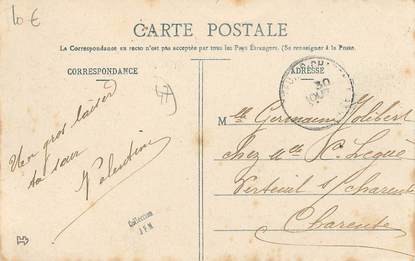 10 €
CARTE POSTALE
La Correspondance au recto n'est pas acceptée par tous les Pays Étrangers. (Se renseigner à la Poste.
CORRESPONDANCE
ADRESSE
30
AOUT
Un gros baiser
ta sœur
Valentine
Mlle Germaine Jolibert
chez Mlle Lequé
Verteuil s/ charente
Charente
Collection
J F M